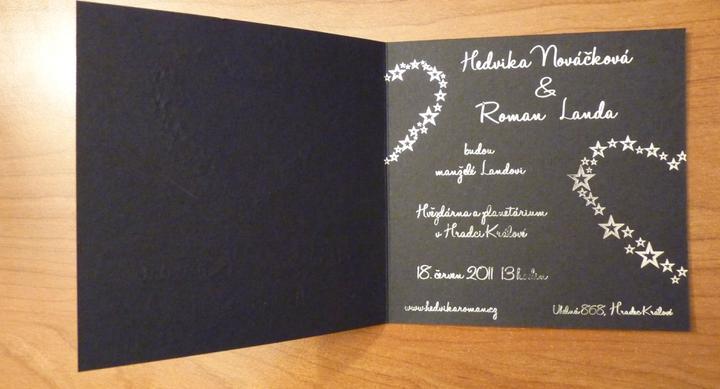 Hedvika Nováčková
&
Roman Landa
budou
manželé Landovi
Hvězdárna a planetárium
v Hradci Králové
18. červen 2011 13 hodin
www.hedvikaroman.cz
868, Hradec Králové